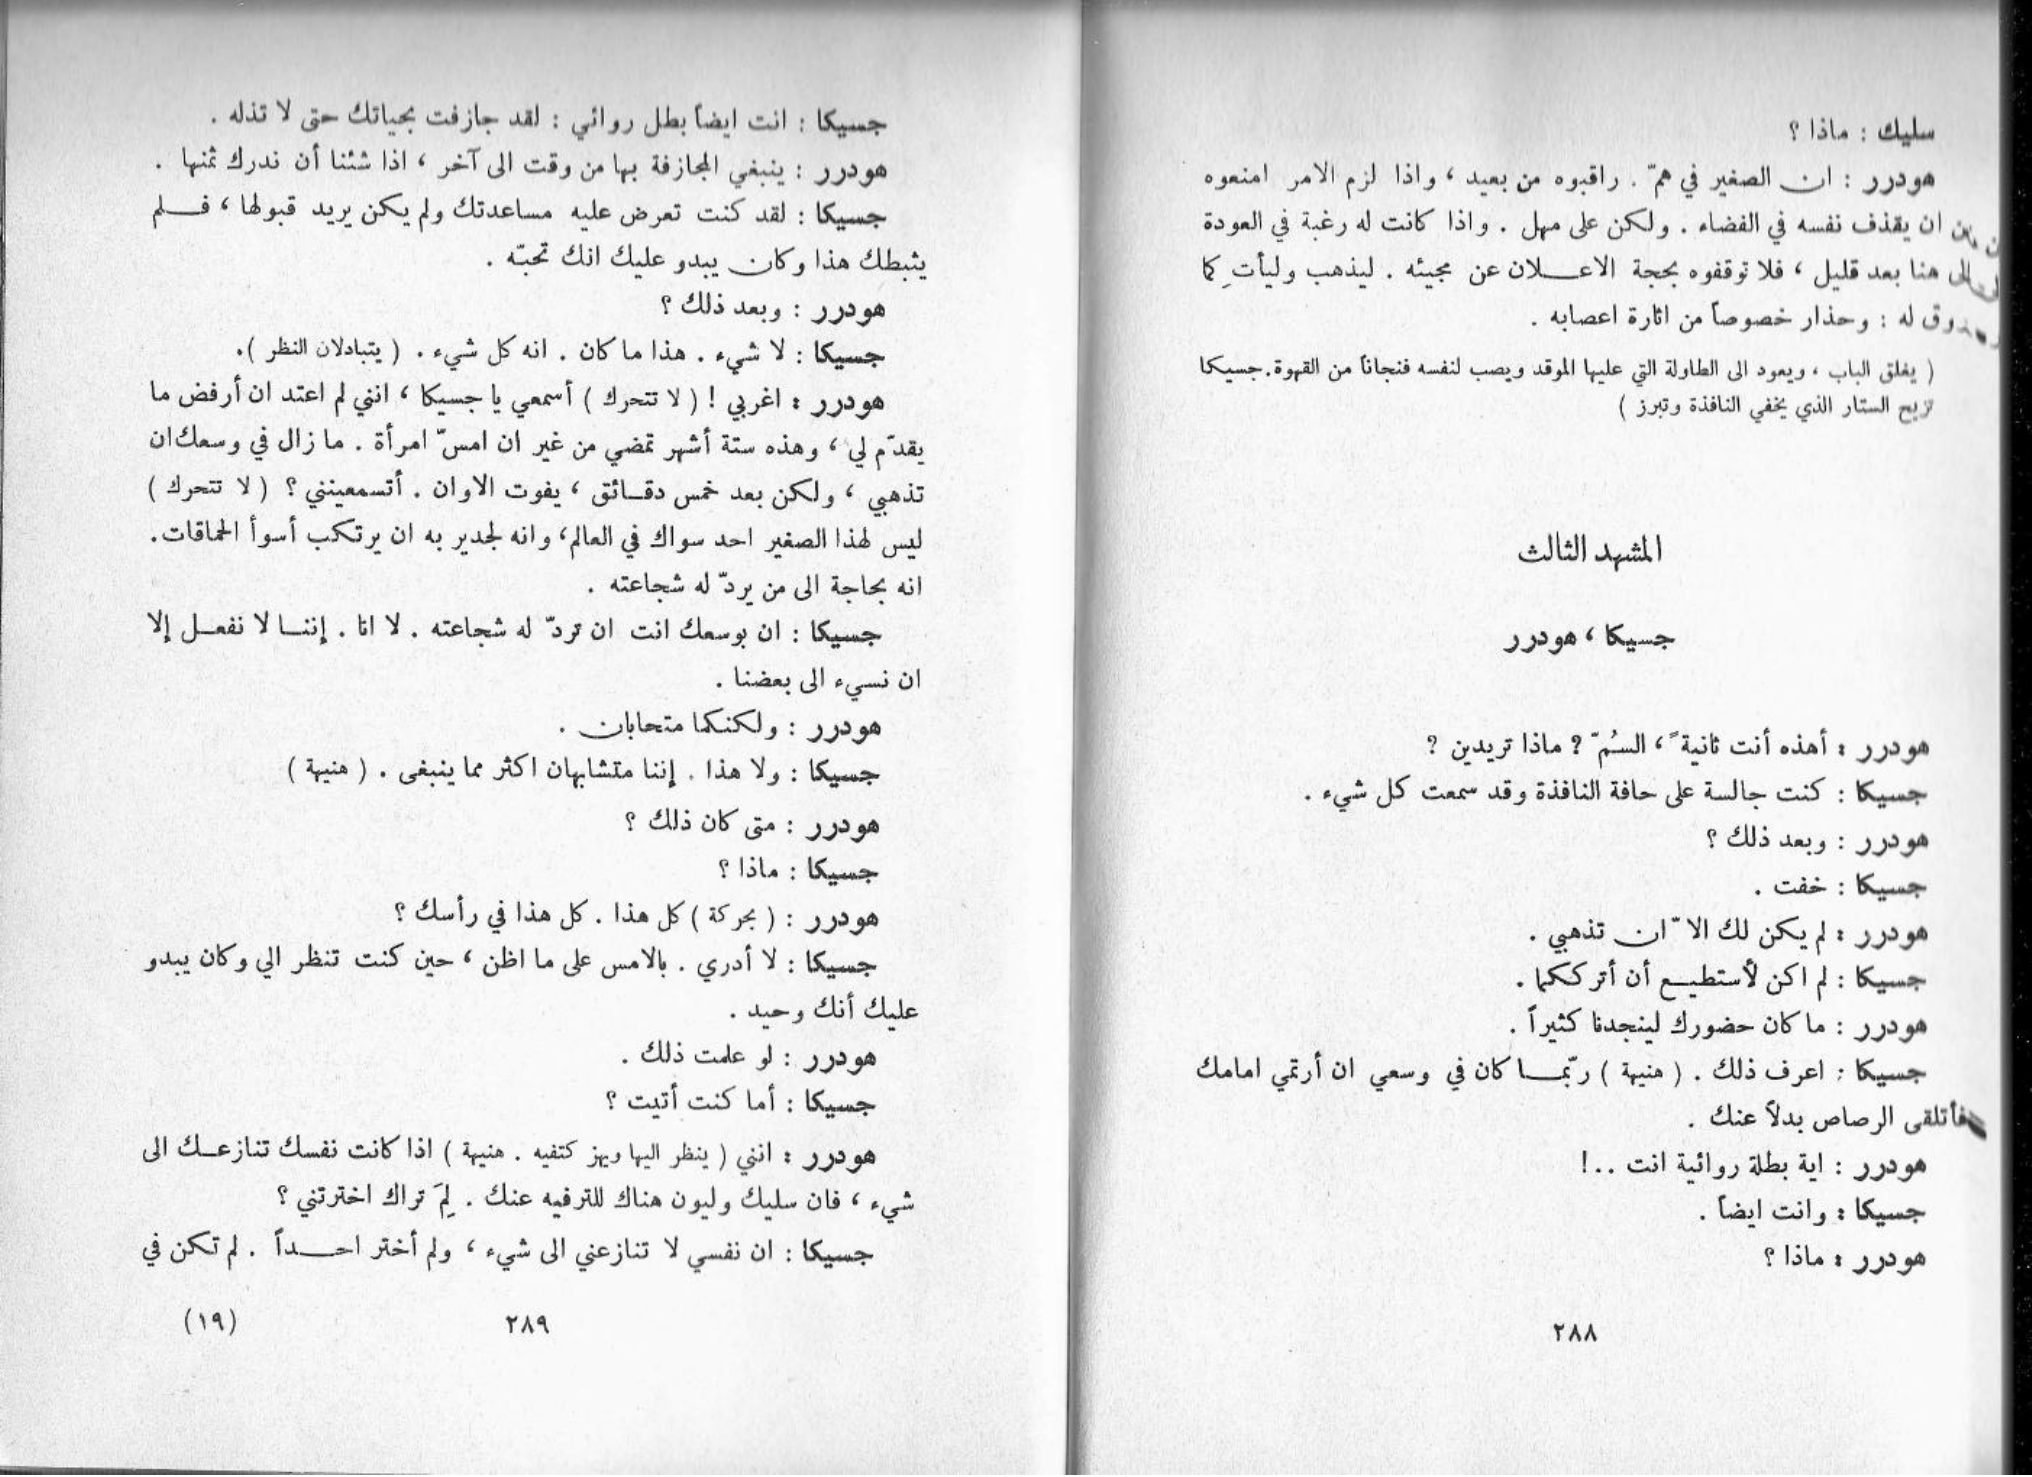 سليك : ماذا ؟
هودرر : ان الصغير في همّ . راقبوه من بعيد ، واذا لزم الامر امنعوه
من ان يقذف نفسه في الفضاء . ولكن على مهل . واذا كانت له رغبة في العودة
الى هنا بعد قليل ، فلا توقفوه بحجة الاعلان عن مجيئه . ليذهب وليأتِ كما
يروق له : وحذار خصوصاً من اثارة اعصابه .
( يغلق الباب ، ويعود الى الطاولة التي عليها الموقد ويصب لنفسه فنجاناً من القهوة . جسيكا
تزيح الستار الذي يخفي النافذة وتبرز )
المشهد الثالث
جسيكا ، هودرر
هودرر : أهذه أنت ثانيةً ، السُمّ ؟ ماذا تريدين ؟
جسيكا : كنت جالسة على حافة النافذة وقد سمعت كل شيء .
هودرر : وبعد ذلك ؟
جسيكا : خفت .
هودرر : لم يكن لك الاّ ان تذهبي .
جسيكا : لم اكن لأستطيع أن أترككما .
هودرر : ما كان حضورك لينجدنا كثيراً .
جسيكا : اعرف ذلك . ( هنيهة ) ربّما كان في وسعي ان أرتمي امامك
فأتلقى الرصاص بدلاً عنك .
هودرر : اية بطلة روائية انت ..!
جسيكا : وانت ايضاً .
هودرر : ماذا ؟
٢٨٨
جسيكا : انت ايضاً بطل روائي : لقد جازفت بحياتك حتى لا تذله .
هودرر : ينبغي المجازفة بها من وقت الى آخر ، اذا شئنا أن ندرك ثمنها .
جسيكا : لقد كنت تعرض عليه مساعدتك ولم يكن يريد قبولها ، فلم
يثبطك هذا وكان يبدو عليك انك تحبّه .
هودرر : وبعد ذلك ؟
جسيكا : لا شيء . هذا ما كان . انه كل شيء . ( يتبادلان النظر ) .
هودرر : اغربي ! ( لا تتحرك ) أسمعي يا جسيكا ، انني لم اعتد ان أرفض ما
يقدّم لي ، وهذه ستة أشهر تمضي من غير ان امسّ امرأة . ما زال في وسعك ان
تذهبي ، ولكن بعد خمس دقائق ، يفوت الاوان . أتسمعينني ؟ ( لا تتحرك )
ليس لهذا الصغير احد سواك في العالم ، وانه لجدير به ان يرتكب أسوأ الحماقات .
انه بحاجة الى من يردّ له شجاعته .
جسيكا : ان بوسعك انت ان تردّ له شجاعته . لا انا . إننا لا نفعل إلا
ان نسيء الى بعضنا .
هودرر : ولكنكما متحابان .
جسيكا : ولا هذا . إننا متشابهان اكثر مما ينبغى . ( هنيهة )
هودرر : متى كان ذلك ؟
جسيكا : ماذا ؟
هودرر : ( بحركة ) كل هذا . كل هذا في رأسك ؟
جسيكا : لا أدري . بالامس على ما اظن ، حين كنت تنظر الي وكان يبدو
عليك أنك وحيد .
هودرر : لو علمت ذلك .
جسيكا : أما كنت أتيت ؟
هودرر : انني ( ينظر اليها ويهز كتفيه . هنيهة ) اذا كانت نفسك تنازعك الى
شيء ، فان سليك وليون هناك للترفيه عنك . لِمَ تراك اخترتني ؟
جسيكا : ان نفسي لا تنازعني الى شيء ، ولم أختر احداً . لم تكن في
٢٨٩
(١٩)